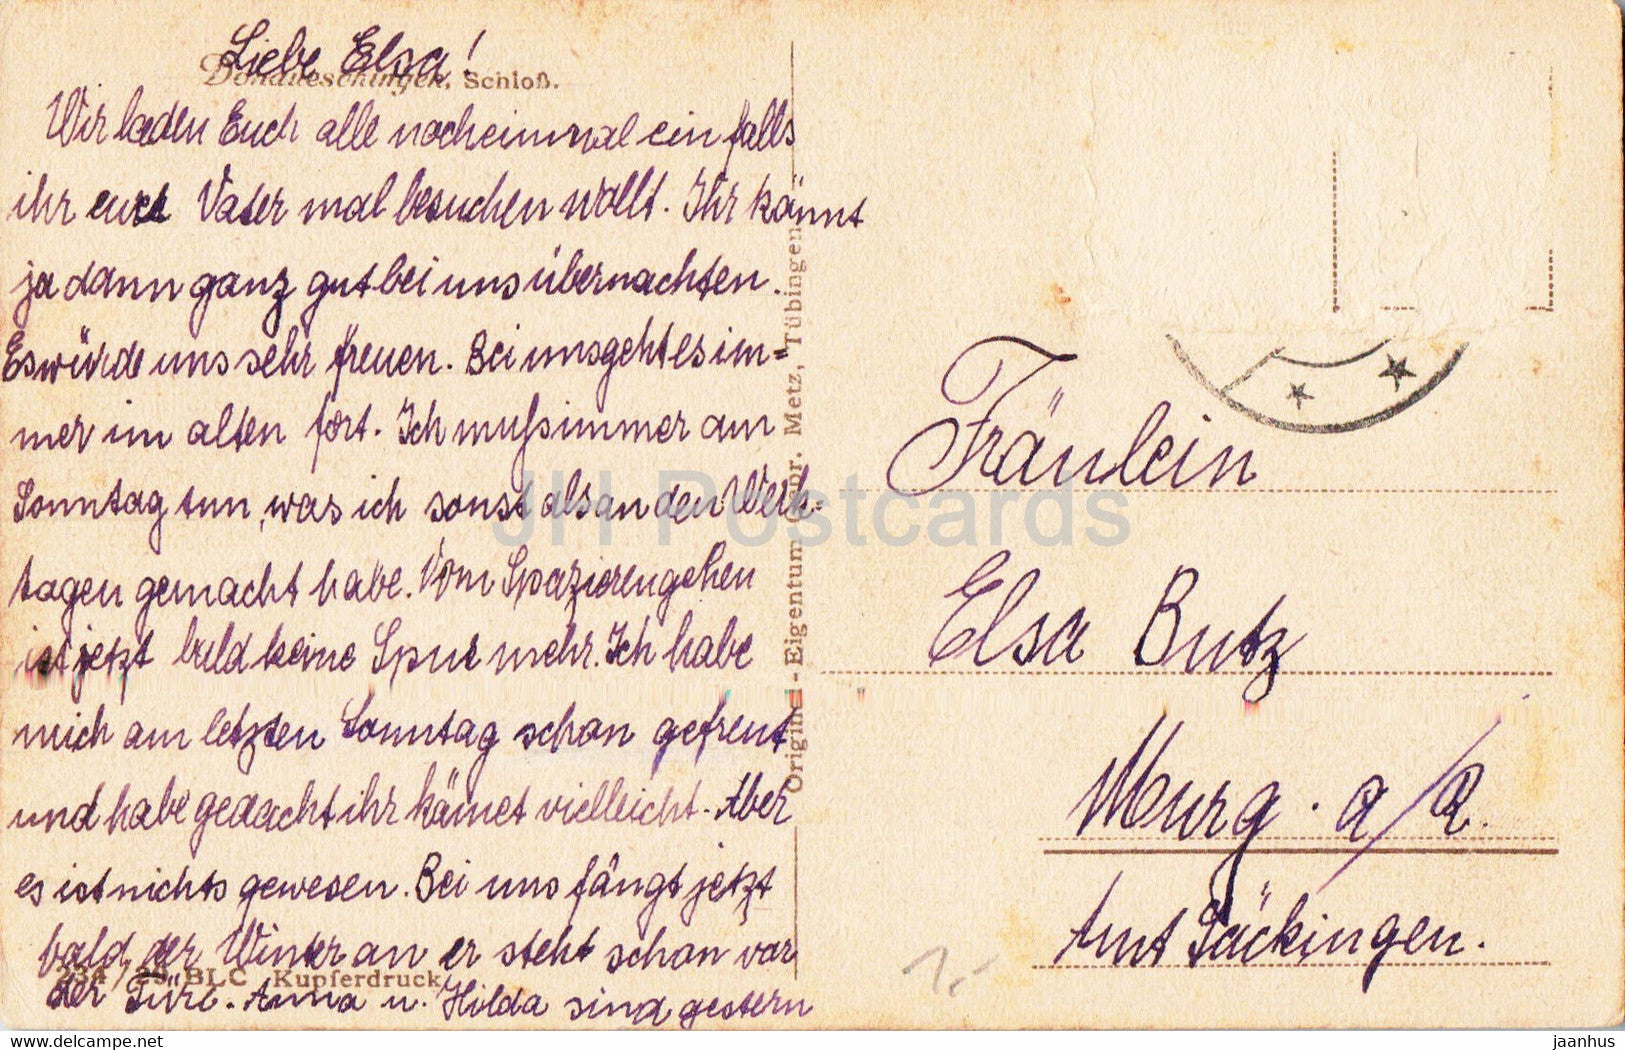 Liebe Elsa!
Donaueschingen, Schloß.
Wir laden Euch alle nocheinmal ein falls
ihr euer Vater mal besuchen wollt. Ihr könnt
ja dann ganz gut bei uns übernachten.
Es würde uns sehr freuen. Bei uns geht es im=
mer im alten fort. Ich muß immer am
Sonntag tun, was ich sonst als an den Werk=
tagen gemacht habe. Vom Spazierengehen
ist jetzt bald keine Spur mehr. Ich habe
mich am letzten Sonntag schon gefreut
und habe gedacht ihr kämet vielleicht. Aber
es ist nichts gewesen. Bei uns fängt jetzt
bald der Winter an er steht schon vor
der Türe. Anna u. Hilda sind gestern
234/29 BLC Kupferdruck
Original - Eigentum Gebr. Metz, Tübingen
Fräulein
Elsa Butz
Murg. a/R.
Amt Säckingen.
1.-
JH Postcards
www.hippostcard.com
jaanhus